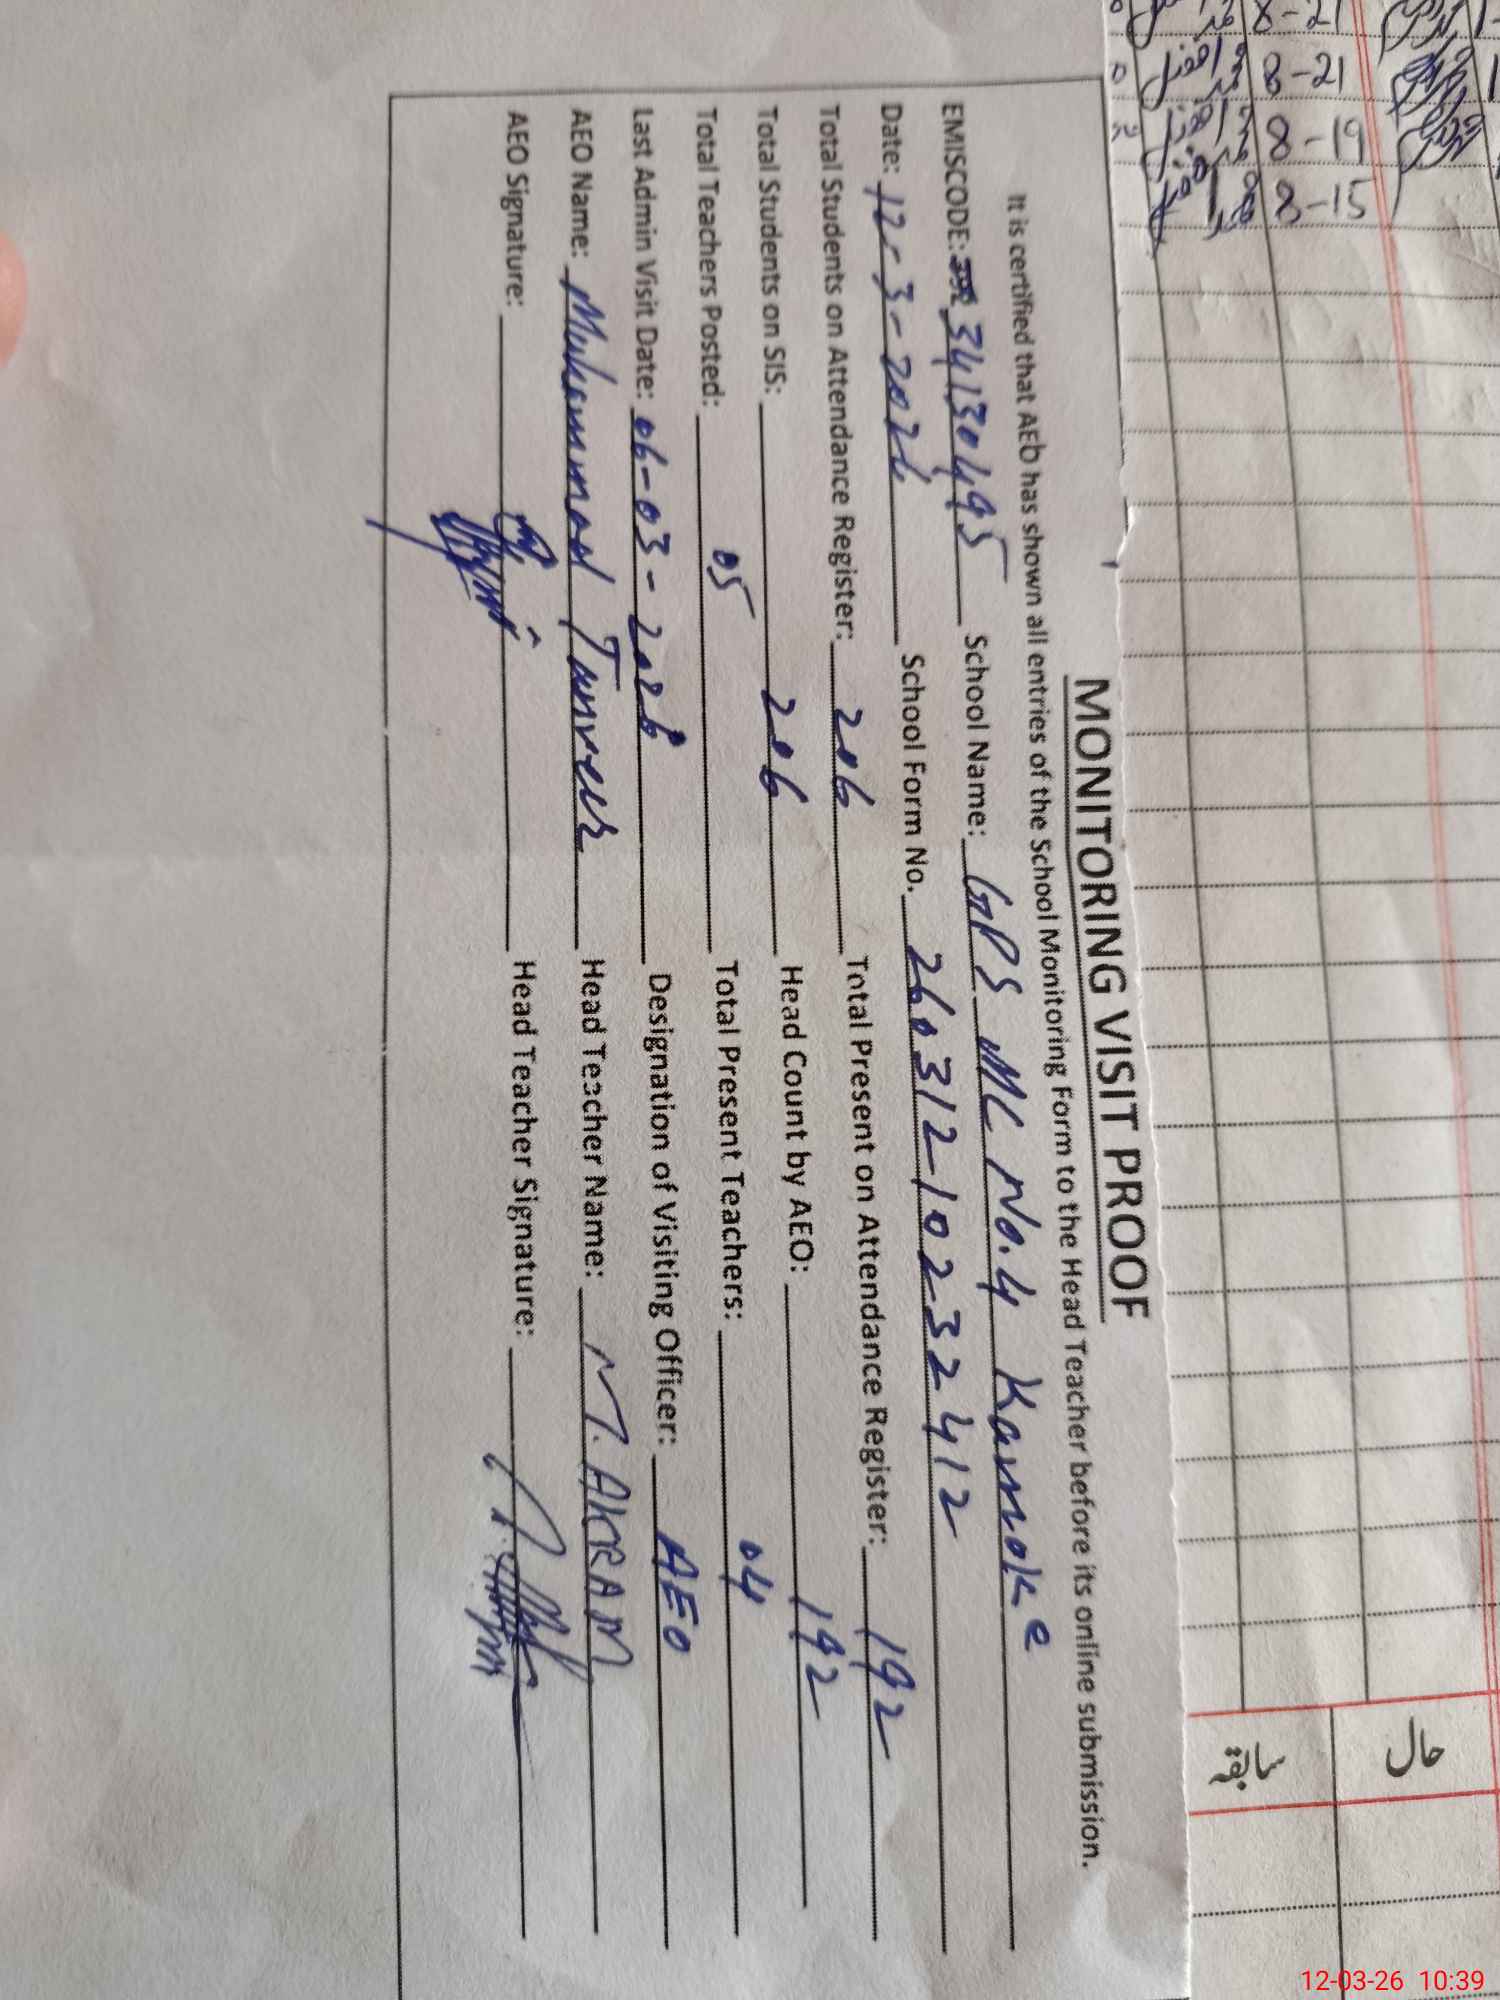 MONITORING VISIT PROOF
It is certified that AEO has shown all entries of the School Monitoring Form to the Head Teacher before its online submission.
EMISCODE: 34130495 School Name: GPS MC No.4 Kamoke
Date: 12-3-2026 School Form No. 26031210232412
Total Students on Attendance Register: 206 Total Present on Attendance Register: 192
Total Students on SIS: 206 Head Count by AEO: 192
Total Teachers Posted: 05 Total Present Teachers: 04
Last Admin Visit Date: 06-03-2026 Designation of Visiting Officer: AEO
AEO Name: Muhammad Tanveer Head Teacher Name: M. AKRAM
AEO Signature: Head Teacher Signature:
8-21
8-21
8-19
8-15
حال
سابقہ
12-03-26 10:39